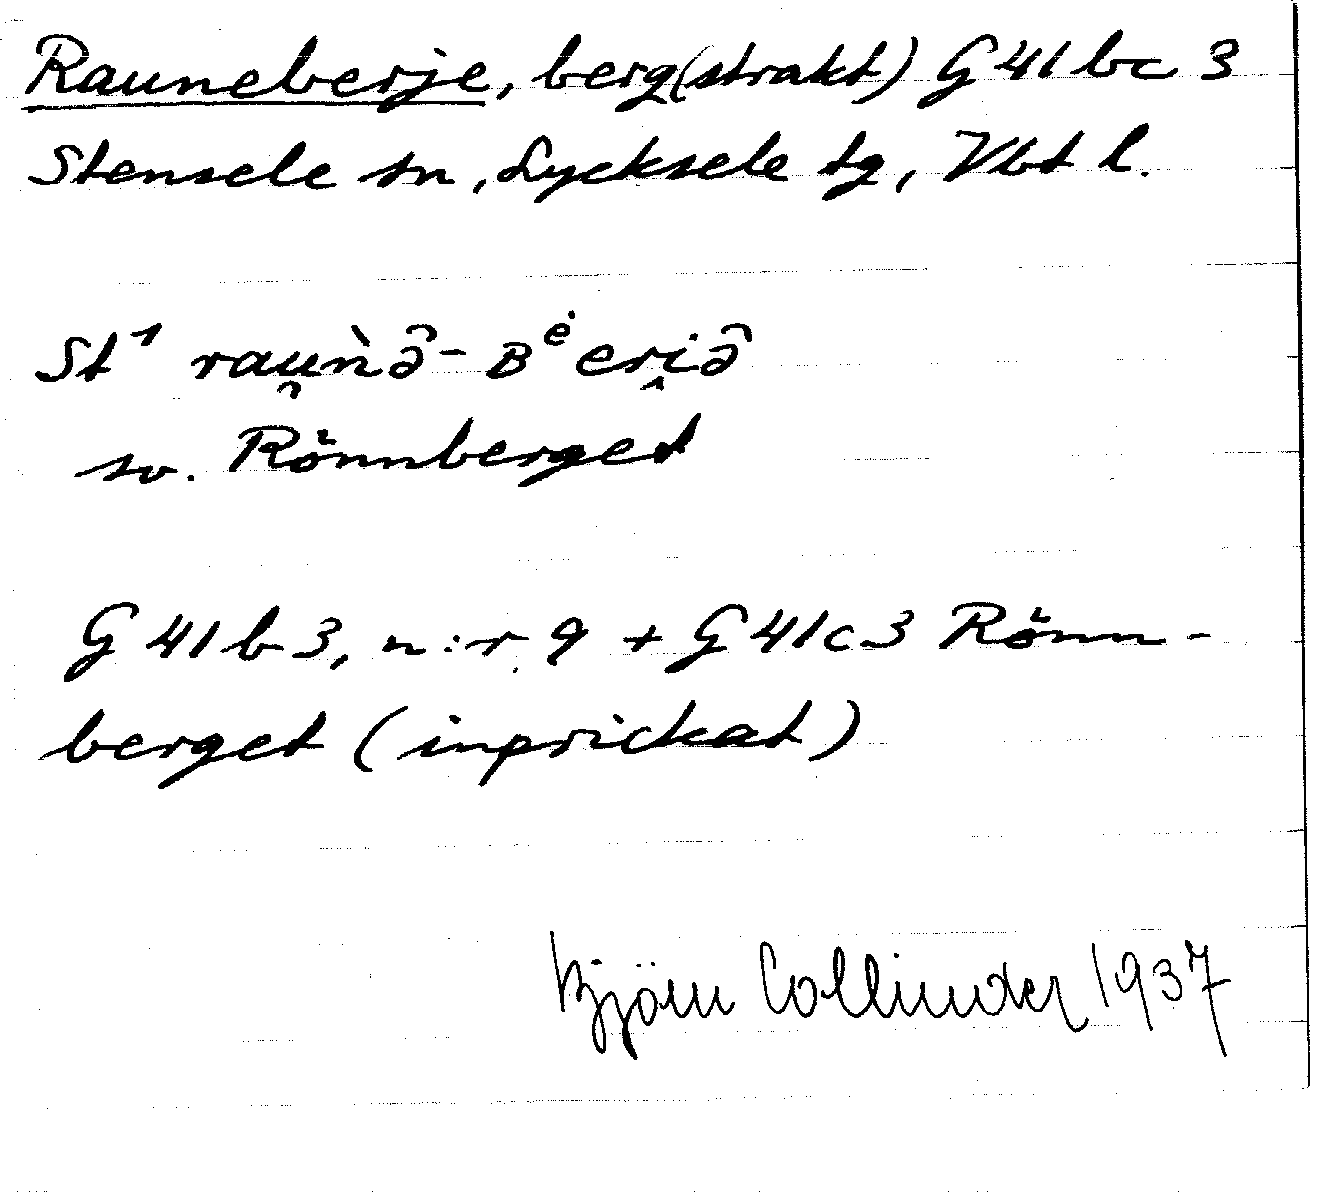 Rauneberje, berg(strakt) G 41 bc 3
Stensele sn, Lycksele tg, Vbt l.
St¹ rau̯ǹə̑-ʙᵉ̇eri̯ə̑
sv. Rönnberget
G 41 b 3, n:r 9 + G 41 c 3 Rönn-
berget (inprickat)
Björn Collinder 1937